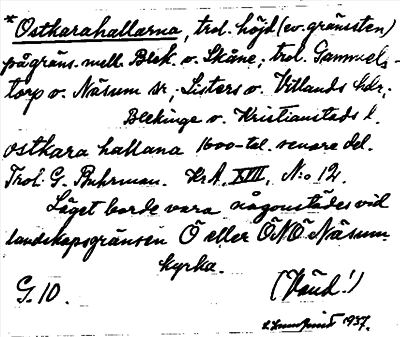 *Ostkarahallarna, trol. höjd (ev. gränssten)
på gräns. mell. Blek. o. Skåne; trol. Gammels-
torp o. Näsum sr; Listers o. Vitlands hdr;
Blekinge o. Kristianstads l.
ostkara hallana 1600-tal. senare del.
Thol. G. Buhrman. KrA. XVII, N:o 12.
Läget borde vara någonstädes vid
landskapsgränsen Ö eller ÖNÖ Näsum
kyrka.
G. 10. (Vänd!)
1937.